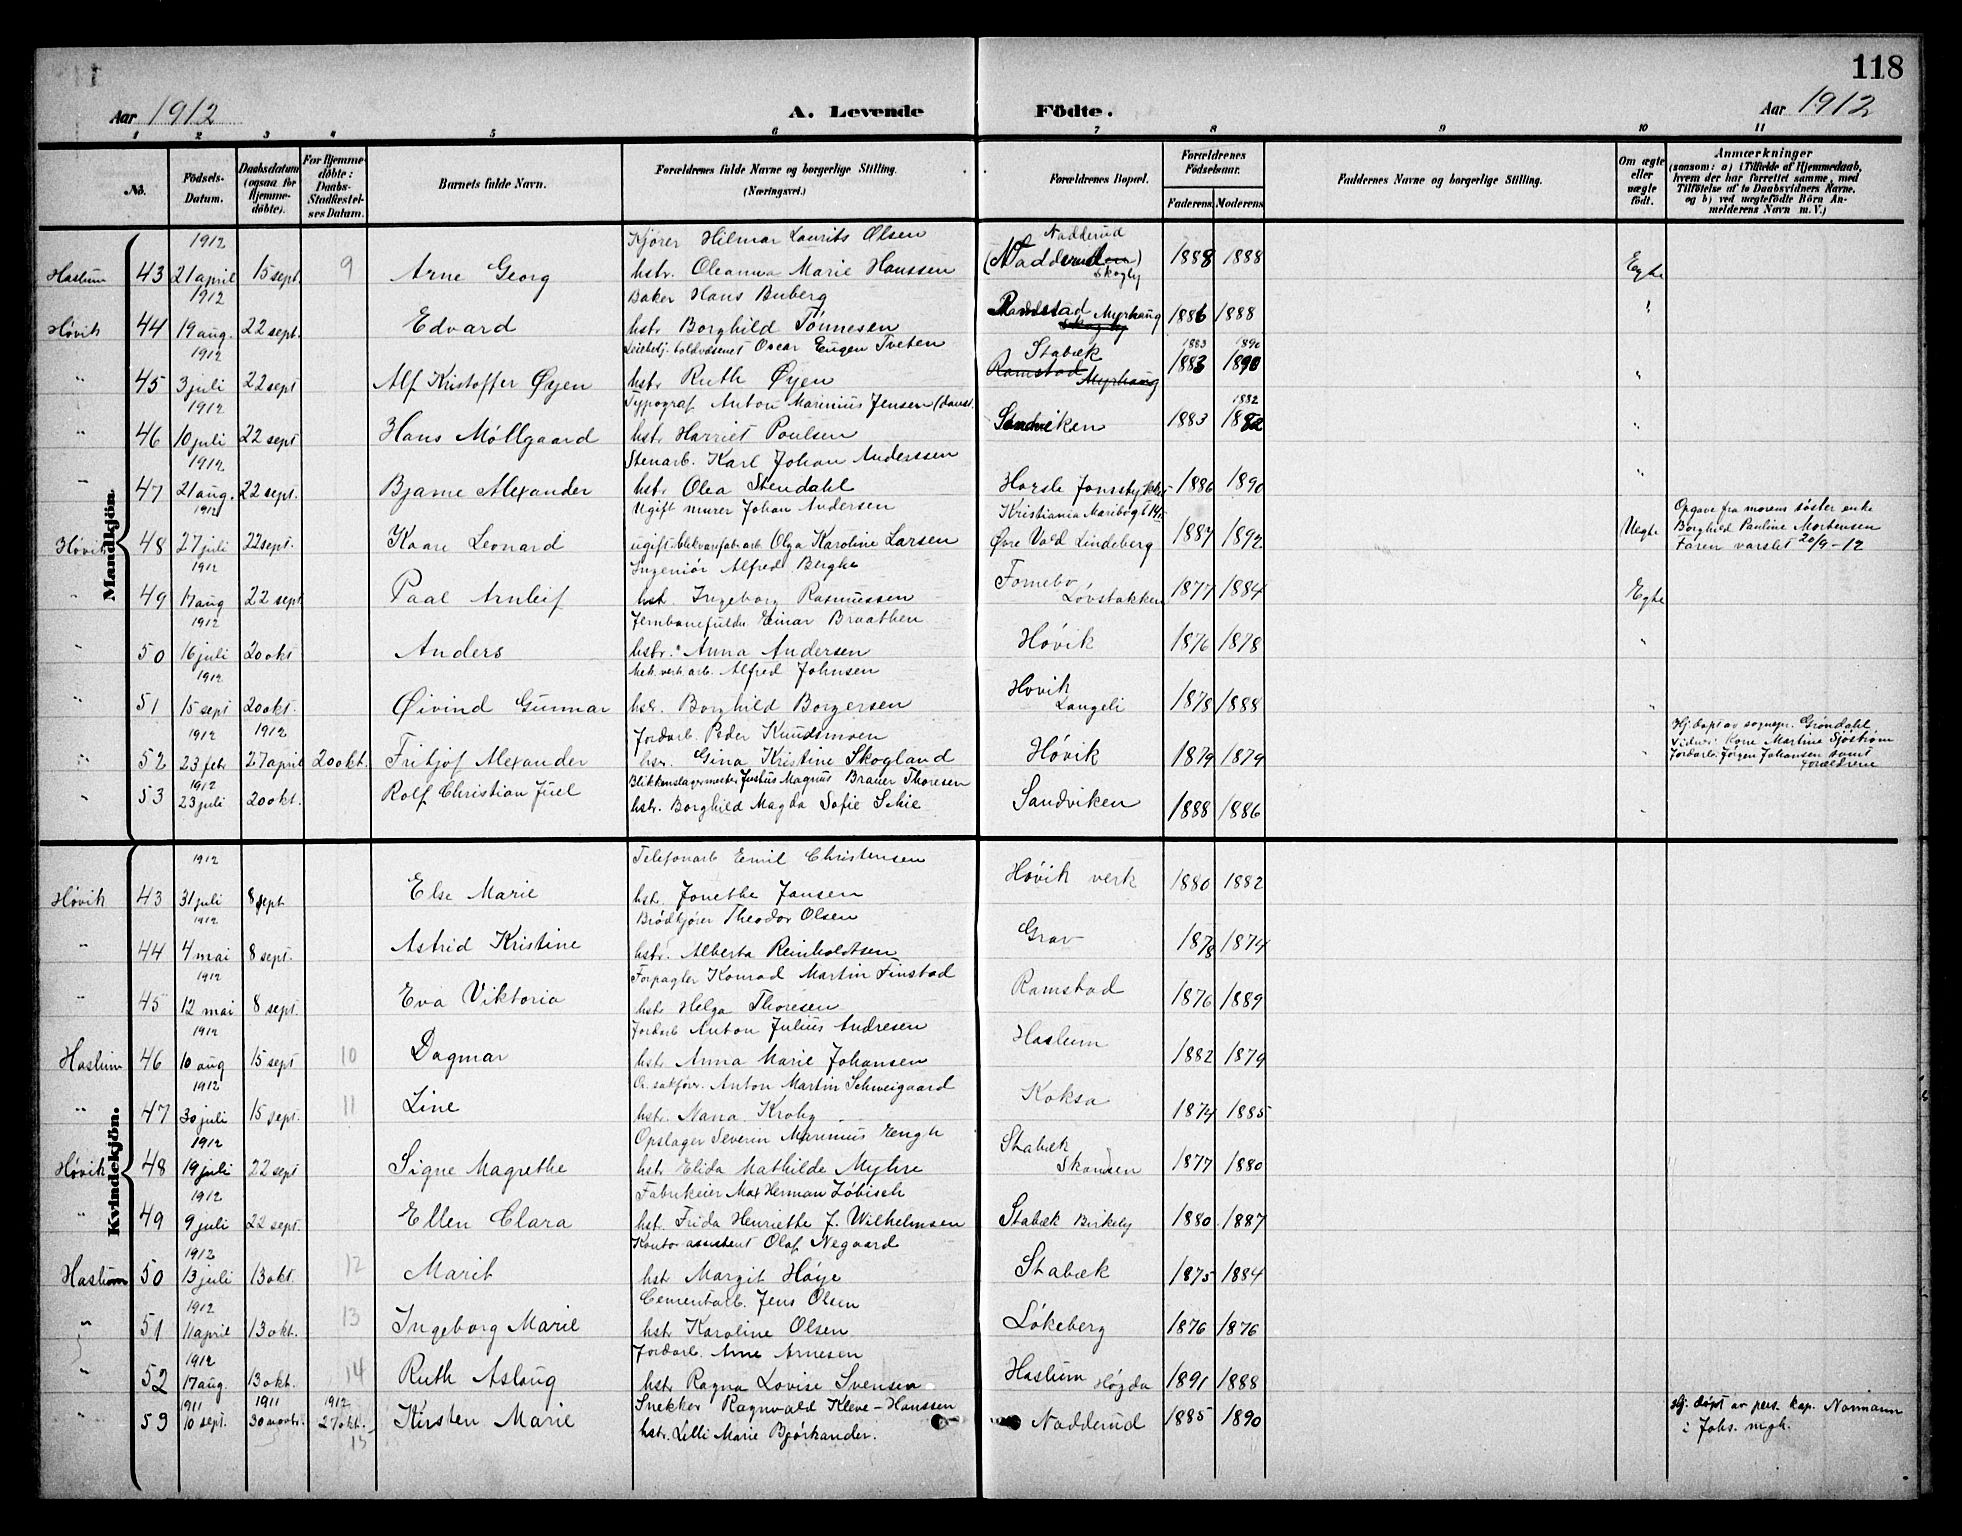 118
Aar 1912
A. Levende Födte.
Aar 1912
1 2 3 4 5 6 7 8 9 10 11
No.
Födsels-Datum.
Daabsdatum (ogsaa for Hjemme-döbte).
For Hjemme-döbte: Daabs-Stadfæstel-ses Datum.
Barnets fulde Navn.
Forældrenes fulde Navne og borgerlige Stilling. (Næringsvei.)
Forældrenes Bopæl.
Forældrenes Födselsaar.
Faderens Moderens
Faddernes Navne og borgerlige Stilling.
Om ægte eller uægte födt.
Anmærkninger
(saasom: a) i Tilfælde af Hjemmedaab, hvem der har forrettet samme, med Tilföielse af to Daabsvidners Navne, og b) ved uægtefödte Börn Anmelderens Navn m. V.)
Mandkjön.
1912 Kjører Hilmar Laurits Olsen Nadderud
Haslum 43 21 april 15 sept. 9 Arne Georg hstr. Oleanna Marie Hanssen Skogly 1888 1888 Egte
1912 Baker Hans Buberg
Høvik 44 19 aug. 22 sept. Edvard hstr Borghild Tønnesen Ramstad Myrhaug 1886 1888 "
1912 toldvæsenet Oscar Eugen Tveten Stabæk 1883 1890
" 45 3 juli 22 sept Alf Kristoffer Øyen hstr Ruth Øyen Ramstad Myrhaug 1883 1890 "
1912 Typograf Anton Marinius Jensen (dansk 1882
" 46 10 juli 22 sept Hans Möllgaard hstr Harriet Poulsen Sandviken 1883 1882 "
1912 Stenarb. Karl Johan Anderssen
" 47 21 aug. 22 sept. Bjarne Alexander hstr Olea Stendahl 1886 1890 "
1912 Ugift murer Johan Andersen Kristiania Maribog
Høvik 48 27 juli 22 sept. Kaare Leonard ugift Olga Karoline Larsen Øvre Vold Lindeberg 1887 1892 Uegte Opgave fra morens søster enke Borghild Pauline Mortensen Faren varslet 20/9-12
1912 Ingeniør Alfred Berghe Fornebo
" 49 17 aug 22 sept Paal Arnleif hst. Ingeborg Rasmussen Løvstakken 1877 1884 Egte
1912 Jernbanefuldm Einar Braathen
" 50 16 juli 20 okt Anders hstr. Anna Andersen Høvik 1876 1878 "
1912 Mek. verk. arb. Alfred Johnsen Høvik
" 51 15 sept 20 okt. Øivind Gunnar hstr. Borghild Borgersen Langeli 1878 1888 "
1912 1912 Jordarb. Peder Knudsmoen
" 52 23 febr 27 april 20 okt. Fritjof Alexander hstr. Gina Kristine Skogland Høvik 1879 1879 " Hj. døpt av sognepr. Grøndahl Vidner: Kone Martine Sjøstrøm Jordarb. Jørgen Johansen samt forældrene
1912 Blikkenslagermester Justus Magnus Brauer Thoresen
" 53 23 juli 20 okt. Rolf Christian Juel hstr. Borghild Magda Sofie Schie Sandviken 1888 1886 "
Kvindekjön.
1912 Telefonarb Emil Christensen
Høvik 43 31 juli 8 sept Else Marie hstr. Jonethe Jansen Høvik verk 1880 1882
1912 Brødkjører Theodor Olsen
" 44 4 mai 8 sept. Astrid Kristine hstr. Alberta Reinholdtsen Grav 1878 1874
1912 Forpagter Konrad Martin Finstad
" 45 12 mai 8 sept. Eva Viktoria hstr Helga Thoresen Ramstad 1876 1889
1912 Jordarb Anton Julius Andresen
Haslum 46 10 aug 15 sept 10 Dagmar hstr Anna Marie Johansen Haslum 1882 1879
1912 O. sakfør. Anton Martin Schweigaard
" 47 30 juli 15 sept. 11 Line hstr. Nana Krohg Koksa 1874 1885
1912 Opslager Severin Marinius Engh Stabæk
Høvik 48 19 juli 22 sept Signe Magrethe hstr Elida Mathilde Myhre Skansen 1877 1880
1912 Fabrikeier Max Herman Zøbisch
" 49 9 juli 22 sept. Ellen Clara hst. Frida Henriette J. Wilhelmsen Stabæk Birkely 1880 1887
1912 Kontorassistent Olaf Negaard
Haslum 50 13 juli 13 okt. 12 Marit hstr Margit Høye Stabæk 1875 1884
1912 Cementarb. Jens Olsen
" 51 11 april 13 okt. 13 Ingeborg Marie hstr Karoline Olsen Løkeberg 1876 1876
1912 Jordarb. Arne Arnesen
" 52 17 aug. 13 okt. 14 Ruth Aslaug hstr Ragna Lovise Svensen Haslum Høgda 1891 1888
1911 1911 1912 Snekker Ragnvald Kleve-Hanssen
" 53 10 sept. 30 novbr. 27 okt. 15 Kirsten Marie hstr. Lilli Marie Bjørkander. Nadderud 1885 1890 Hj. døpt av pers. kap. Normann i Johs. mgh.